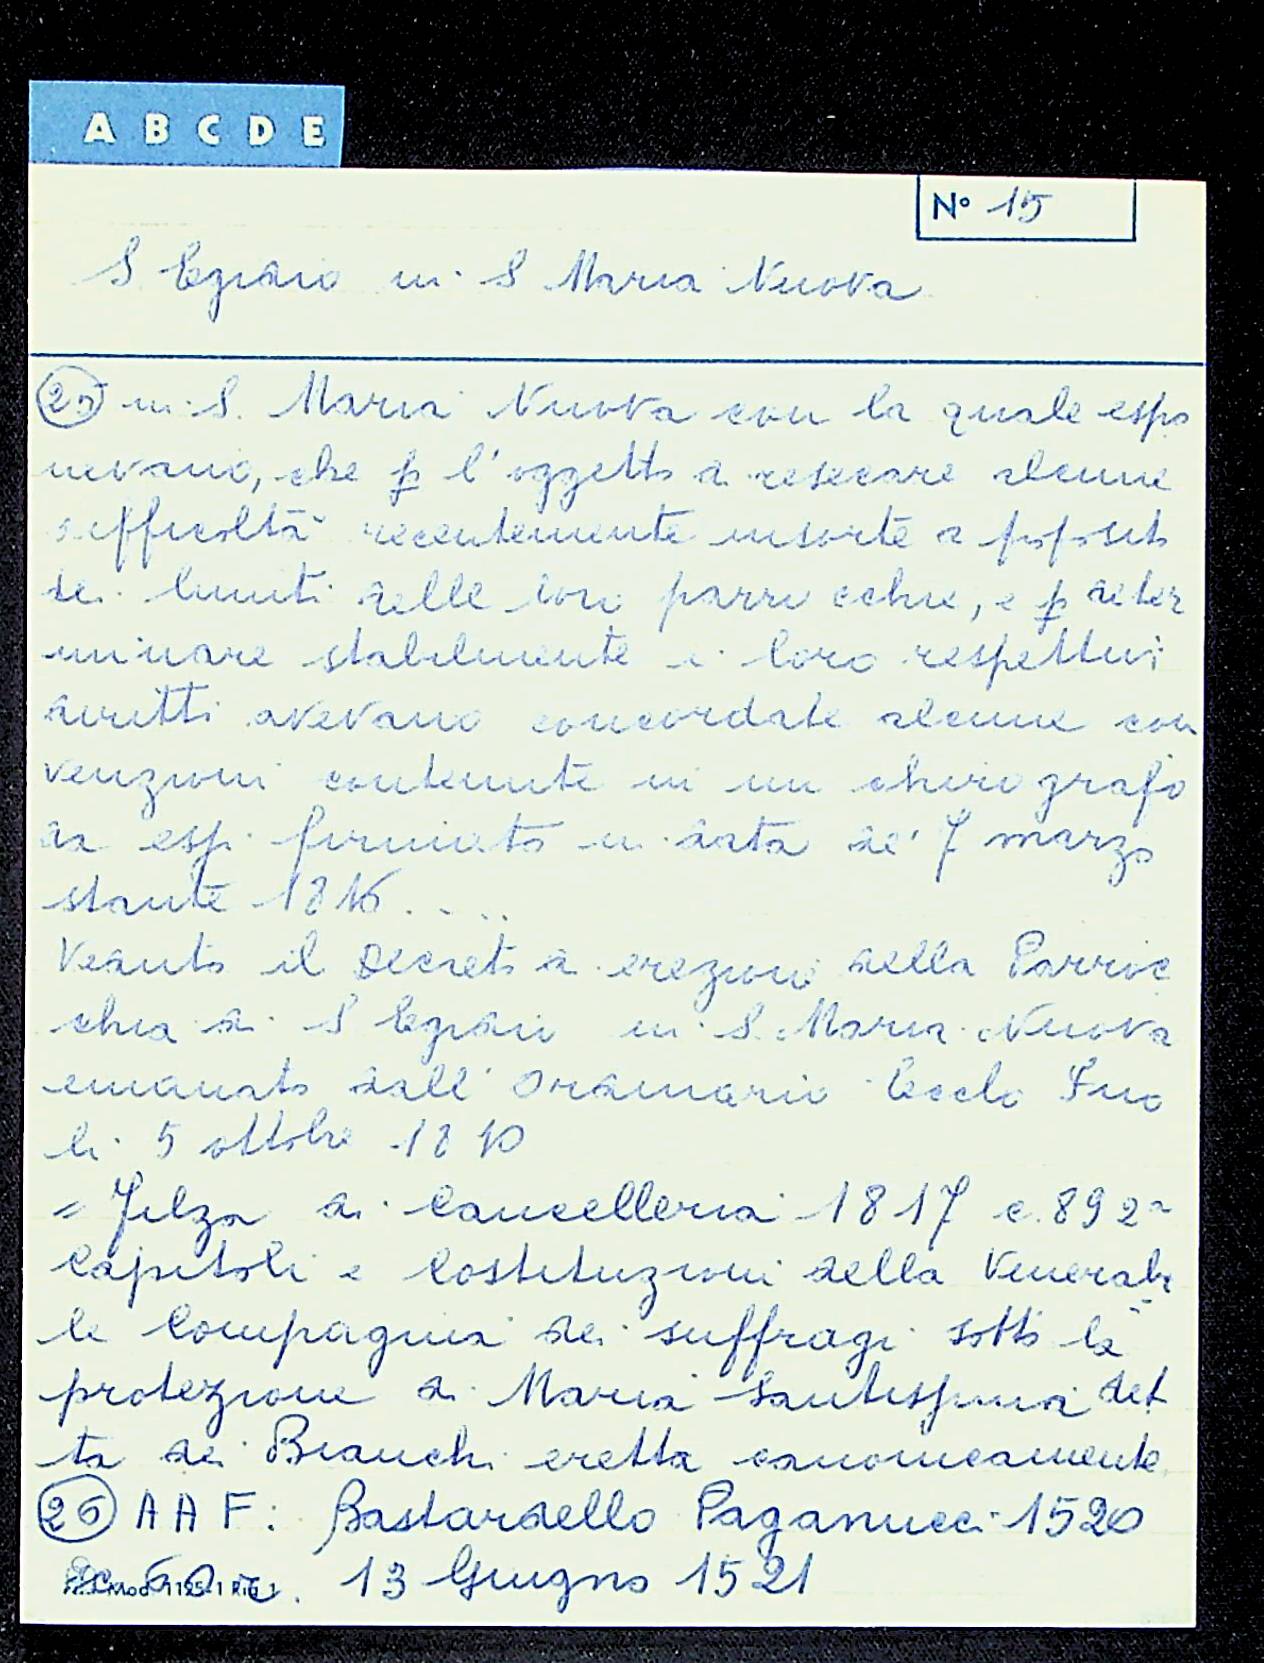 A B C D E
N° 15
S Egidio in S Maria Nuova
25 in S. Maria Nuova con la quale espo
nevano, che p l'oggetto di resecare alcune
difficoltà recentemente insorte a pposito
dei limiti delle loro parrocchie, e p deter
minare stabilmente i loro respettivi
diritti avevano concordate alcune con
venzioni contenute in un chirografo
da essi firmato in data de' 7 marzo
stante 1816....
Veduto il Decreto di erezione della Parroc
chia di S Egidio in S. Maria Nuova
emanato dall' Ordinario Ecclo Fino
li 5 ottobre 1810
= Filza di Cancelleria 1817 c. 89 2ª
Capitoli e Costituzioni della Venerabi
le Compagnia dei suffragi sotto la
protezione di Maria Santissima det
ta dei Bianchi eretta canonicamente
26 A A F: Bastardello Paganucci 1520
13 Giugno 1521